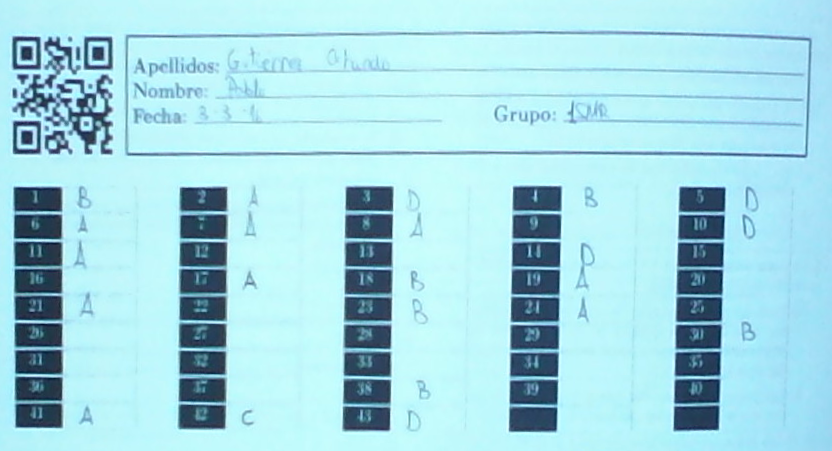 Apellidos: Gutierrez
Nombre: Pablo
Fecha: 3 3 Grupo: 1SMR
1 B 2 A 3 D 4 B 5 D
6 A 7 A 8 A 9 10 D
11 A 12 13 14 D 15
16 17 A 18 B 19 A 20
21 A 22 23 B 24 A 25
26 27 28 29 30 B
31 32 33 34 35
36 37 38 B 39 40
41 A 42 C 43 D